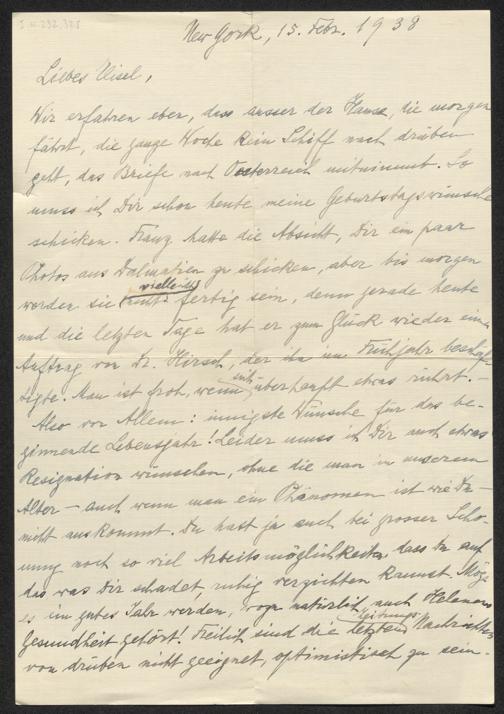 I.N. 232.328
New York, 15. Febr. 1938
Liebes Misel,
Wir erfahren eben, dass ausser der Hansa, die morgen
fährt, die ganze Woche kein Schiff nach drüben
geht, das Briefe nach Oesterreich mitnimmt. So
muss ich Dir schon heute meine Geburtstagswünsche
schicken. Franz hatte die Absicht, Dir ein paar
Photos aus Dalmatien zu schicken, aber bis morgen
werden sie vielleicht nicht fertig sein, denn gerade heute
und die letzten Tage hat er zum Glück wieder einen
Auftrag von Dr. Hirsch, der ihn im Frühjahr beschäf-
tigte. Man ist froh, wenn sich überhaupt etwas rührt. –
Also vor Allem: innigste Wünsche für das be-
ginnende Lebensjahr! Leider muss ich Dir auch etwas
Resignation wünschen, ohne die man in unserem
Alter – auch wenn man ein Phänomen ist wie Du –
nicht auskommt. Du hast ja auch bei grosser Scho-
nung noch so viel Arbeitsmöglichkeiten, dass Du auf
das was Dir schadet, ruhig verzichten kannst. Möge
es ein gutes Jahr werden, wozu natürlich auch Helenens
Gesundheit gehört! Freilich sind die letzten Zeitungs-Nachrichten
von drüben nicht geeignet, optimistisch zu sein.